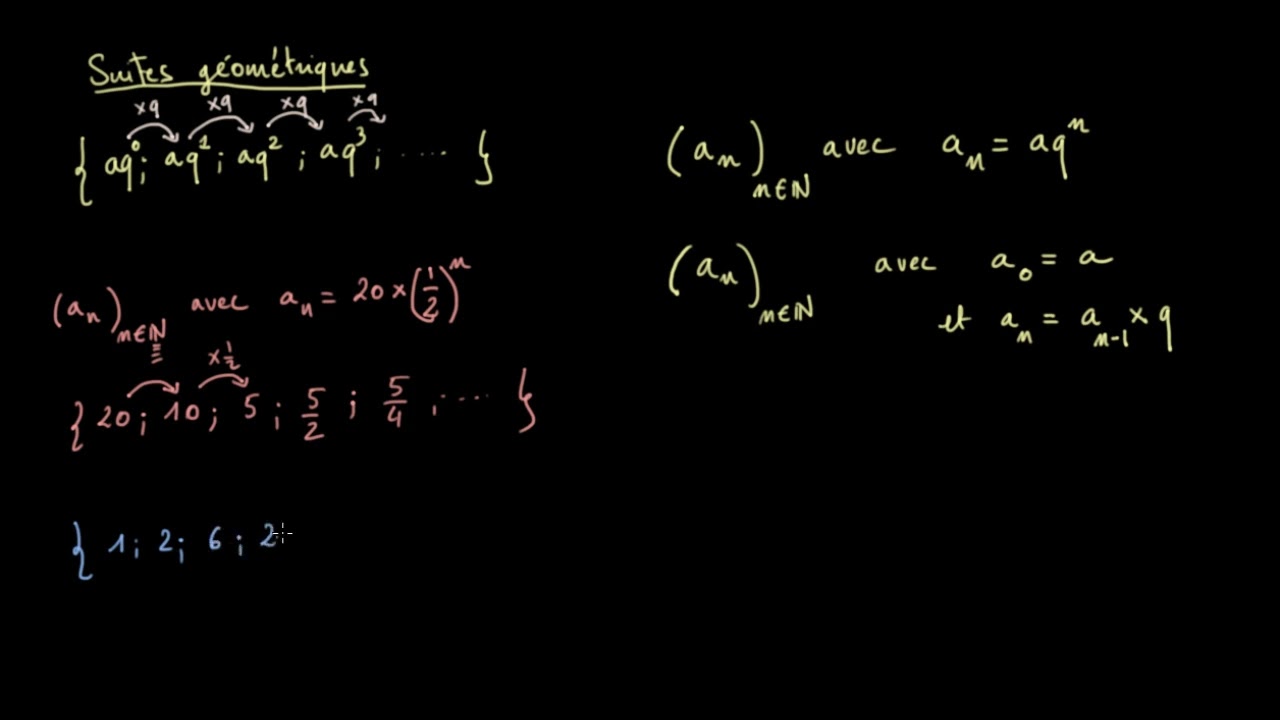 Suites géométriques
×q ×q ×q ×q
{ aq⁰; aq¹; aq²; aq³; .... }
(aₙ)ₙ∈ℕ avec aₙ = aqⁿ
(aₙ)ₙ∈ℕ avec a₀ = a
et aₙ = aₙ₋₁ × q
(aₙ)ₙ∈ℕ avec aₙ = 20 × (1/2)ⁿ
×1/2
{ 20; 10; 5; 5/2; 5/4; .... }
{ 1; 2; 6; 2